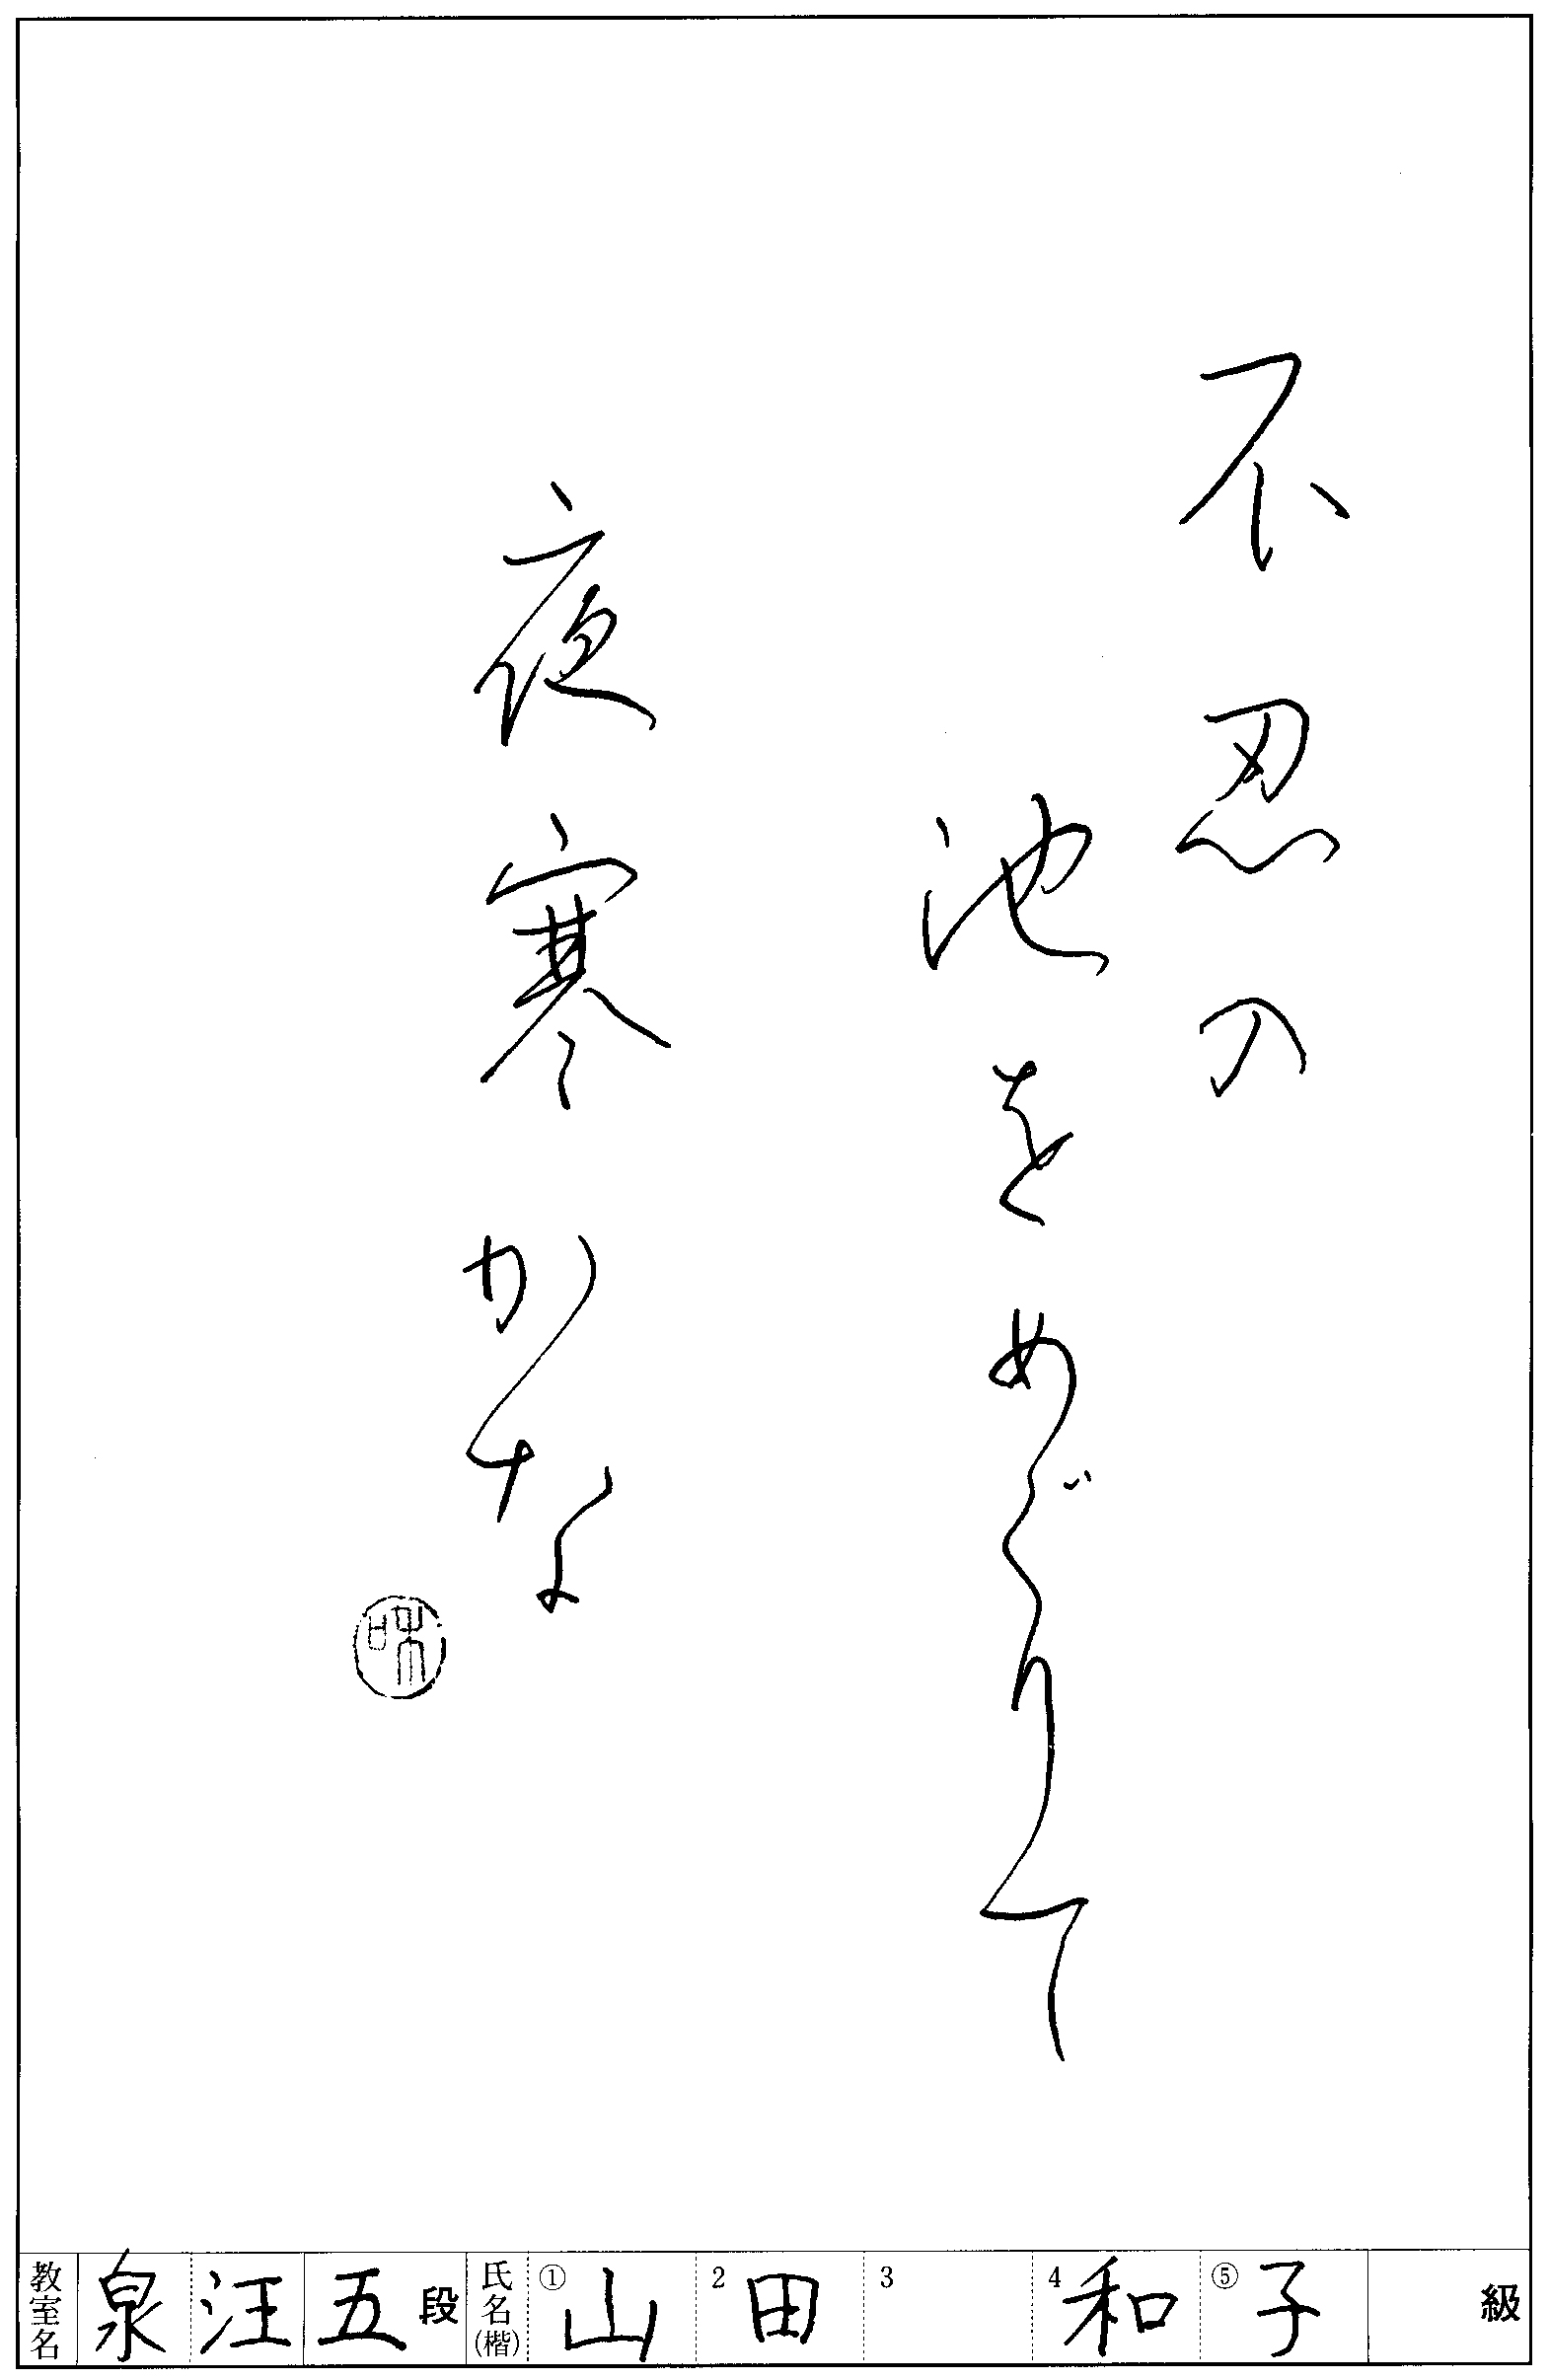 不忍の
池をめぐりて
夜寒かな
和
教室名 泉汪 五段 氏名(楷) ①山 2田 3 4和 ⑤子 級